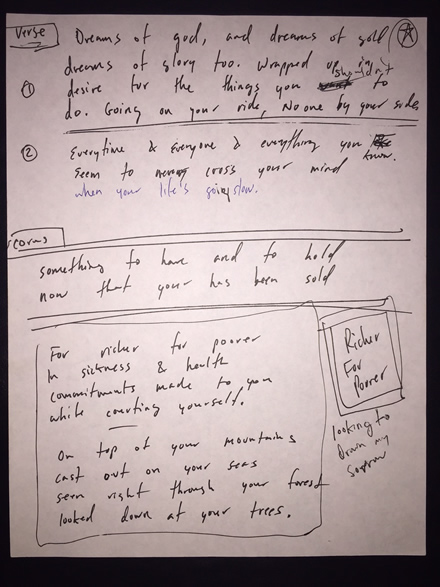 Verse
Dreams of god, and dreams of gold
dreams of glory too. Wrapped up in
① desire for the things you shouldn't to
do. Going on your ride, No one by your side
② Everytime & Everyone & everything you know.
seem to cross your mind
when your life's going slow.
something to have and to hold
now that your has been sold
For richer for poorer
In sickness & health
commitments made to you
while courting yourself.
On top of your mountains
cast out on your seas
seen right through your forest
looked down at your trees.
Richer
For
Poorer
looking to
drown my
sorrow